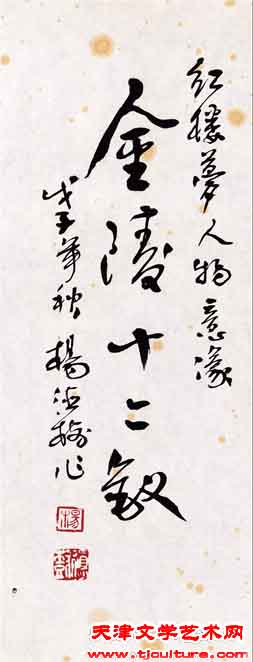 红楼夢人物意像
金陵十二釵
戊子年秋 楊德樹作
楊
天津文学艺术网
www.tjculture.com